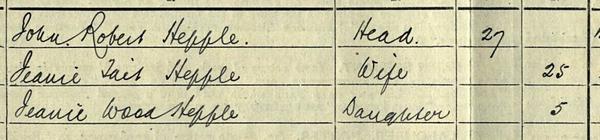 John. Robert Hepple. Head. 27
Jeanie Tait Hepple Wife 25
Jeanie Wood Hepple Daughter 5